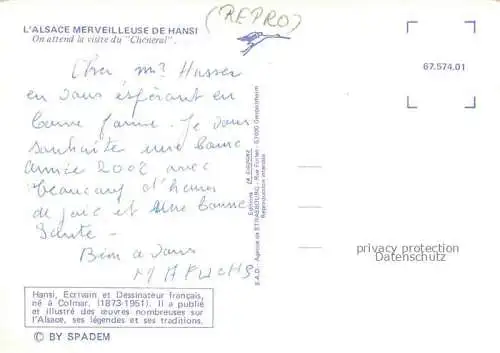 (REPRO)
L'ALSACE MERVEILLEUSE DE HANSI
On attend la visite du "Chéneral".
67.574.01
Cher mr Husser
en vous espérant en
bonne forme. Je vous
souhaite une bonne
année 2002 avec
beaucoup d'heures
de joie et une bonne
Santé -
Bien a vous
MAFUCHS
Editions LA CIGOGNE
E.A.D. - Agence de STRASBOURG - Rue Forlen - 67400 Geispolsheim
Reproduction interdite
privacy protection
Datenschutz
Hansi, Ecrivain et Dessinateur français,
né à Colmar. (1873-1951). Il a publié
et illustré des œuvres nombreuses sur
l'Alsace, ses légendes et ses traditions.
© BY SPADEM